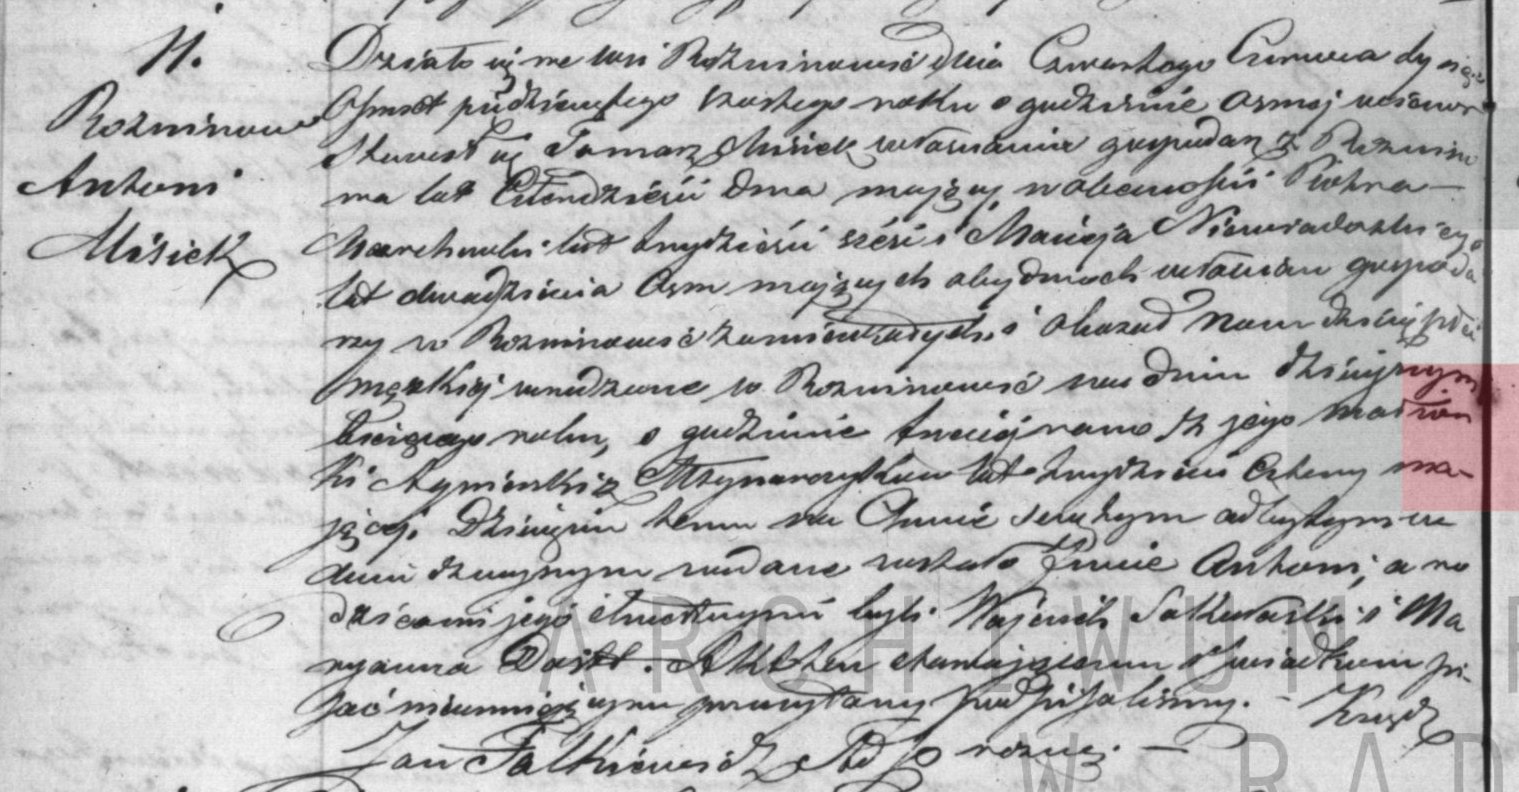 11.
Rozninowo
Antoni
Misiek
Działo się we wsi Rozninowie dnia Czwartego Czerwca tysiąc
Ośmset piędziesiątego szostego roku o godzinie osmej wieczor
Stawił się Tomasz Misiek włościanin gospodarz z
ma lat Czterdzieści dwa mający, w obecności Piotra
lat trzydzieści sześć i Macieja
lat dwadzieścia Osm mających obydwuch włościan gospoda
rzy w Rozninowie zamieszkałych, i okazał Nam dziecię płci
męzkiej urodzone w Rozninowie na dniu dzisiejszym
bieżącego roku, o godzinie trzeciej rano z jego małżon
ki Agnieszki z Młynarczyków lat trzydzieści Cztery ma-
jącej. Dziecięciu temu na Chrzcie świętym odbytym w
dniu dzisiejszym nadane zostało Imie Antoni, a ro
dzicami jego chrzestnymi byli Wojciech i Ma
ryanna . Akt ten stawającemu i Swiadkom pi-
sać nieumiejącym przeczytany podpisaliśmy. - Ksiądz
Jan Falkiewicz
ARCHIWUM P
W RAD